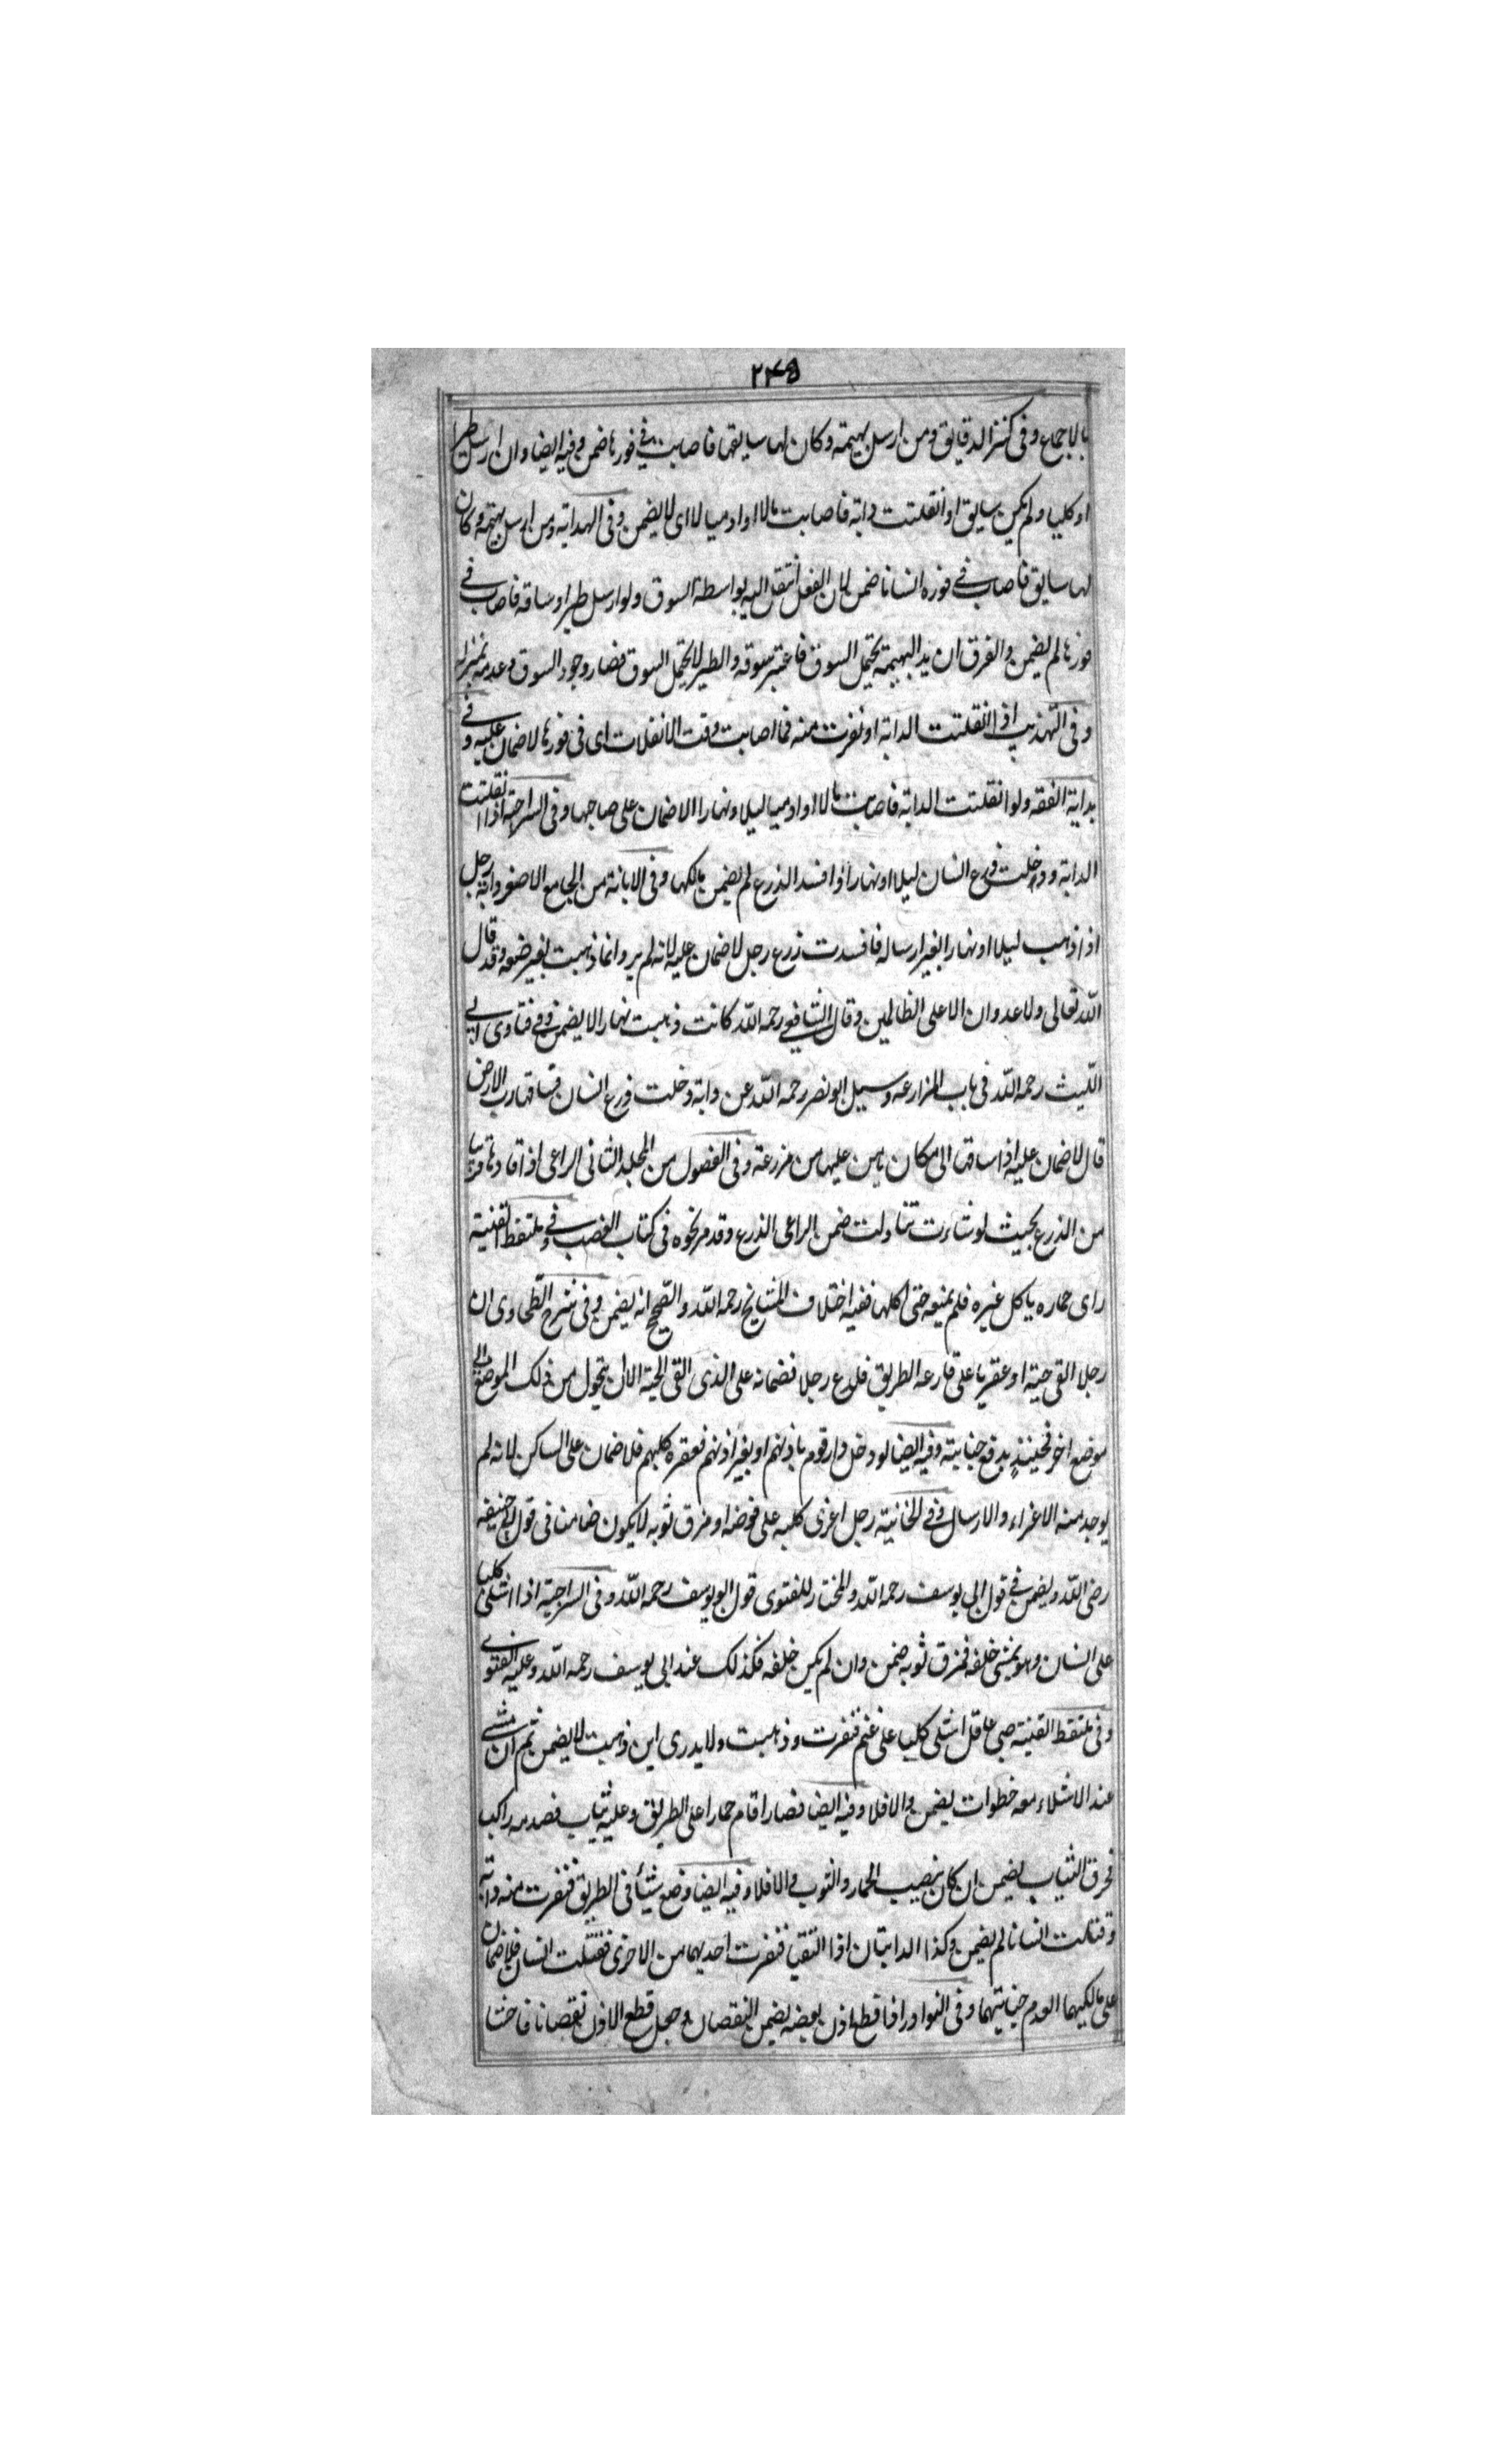 ۲۴۵
بالاجماع وفى كنز الدقايق ومن ارسل بهيمة وكان لها سايقها فاصابت فى فورها ضمن وفيه ايضا وان ارسل طيرا
او كلبا ولم يكن سايق او انفلتت دابة فاصابت مالا او ادميا لا اى لا يضمن وفى الهداية ومن ارسل بهيمة وكان
لها سايق فاصاب فى فوره انسانا ضمن لان الفعل انتقل اليه بواسطة السوق ولو ارسل طيرا وساقه فاصاب فى
فورها لم يضمن والفرق ان يد البهيمة يحتمل السوق فاعتبر سوقه والطير لا يحتمل السوق فصار وجود السوق وعدمه بمنزلة
وفى التهذيب اذا انفلتت الدابة او نفرت منه فما اصابت وقت الانفلات اى فى فورها لا ضمان عليه وفى
بداية الفقه ولو انفلتت الدابة فاصابت مالا او ادميا ليلا ونهارا لا ضمان على صاحبها وفى السراجية اذا انفلتت
الدابة ودخلت زرع انسان ليلا او نهارا وافسد الذرع لم يضمن مالكها وفى الابانة من الجامع الاصغر دابة رجل
اذا ذهب ليلا او نهارا بغير ارساله فافسدت زرع رجل لا ضمان عليه لانه لم ير وانما ذهبت بغير صنعه وقد قال
الله تعالى ولا عدوان الا على الظالمين وقال الشافعى رحمه الله كانت ذهبت نهارا لا يضمن وفى فتاوى ابى
الليث رحمه الله فى باب المزارعه وسيل ابو نصر رحمه الله عن دابة دخلت زرع انسان فساقها رب الارض
قال لا ضمان عليه اذا ساقها الى مكان يامن عليها من مزرعة وفى الفصول من المجلد الثانى الراعى اذا قادها قريبا
من الذرع بحيث لو شاءت تناولت ضمن الراعى الذرع وقد مر نحوه فى كتاب الغصب وفى ملتقط القنية
راى حماره ياكل غيره فلم يمنعه حتى اكلها ففيه اختلاف المشايخ رحمه الله والصحيح انه يضمن وفى شرح الطحاوى ان
رجلا القى حية او عقربا على قارعة الطريق فلدع رجلا فضمانه على الذى القى الحية الا ان يتحول من ذلك الموضع الى
موضع اخر فحينئذ يدفع جنايته وفيه ايضا لو دخل دار قوم باذنهم او بغير اذنهم فعقره كلبهم فلا ضمان على الساكن لانه لم
يوجد منه الاغراء والارسال وفى الخانية رجل اغرى كلبه على فوضه او مزق ثوبه لا يكون ضامنا فى قول ابى حنيفه
رضى الله ويضمن فى قول ابى يوسف رحمه الله والمختار للفتوى قول ابو يوسف رحمه الله وفى السراجية اذا اشلى كلبا
على انسان وهو يمشى خلفه فمزق ثوبه ضمن وان لم يكن خلفه فكذلك عند ابى يوسف رحمه الله وعليه الفتوى
وفى ملتقط القنية صبى عاقل اشلى كلبا على غنم فنفرت وذهبت ولا يدرى اين ذهبت لا يضمن ثم ان مشى
عند الاشلاء معه خطوات يضمن والا فلا وفيه ايضا قصار اقام حمارا على الطريق وعليه ثياب فصدمه راكب
فحرق الثياب يضمن ان كان بنصيب الحمار والثوب والا فلا وفيه ايضا وضع شيئا فى الطريق فنفرت منه دابة
وقتلت انسانا لم يضمن وكذا الدابتان اذا التقيا فنفرت احديهما من الاخرى فقتلت انسان فلا ضمان
على مالكيهما العدم جنايتهما وفى النوادر اذا قطع اذن بعضه يضمن النقصان وجعل قطع الاذن نقصانا فاحشا